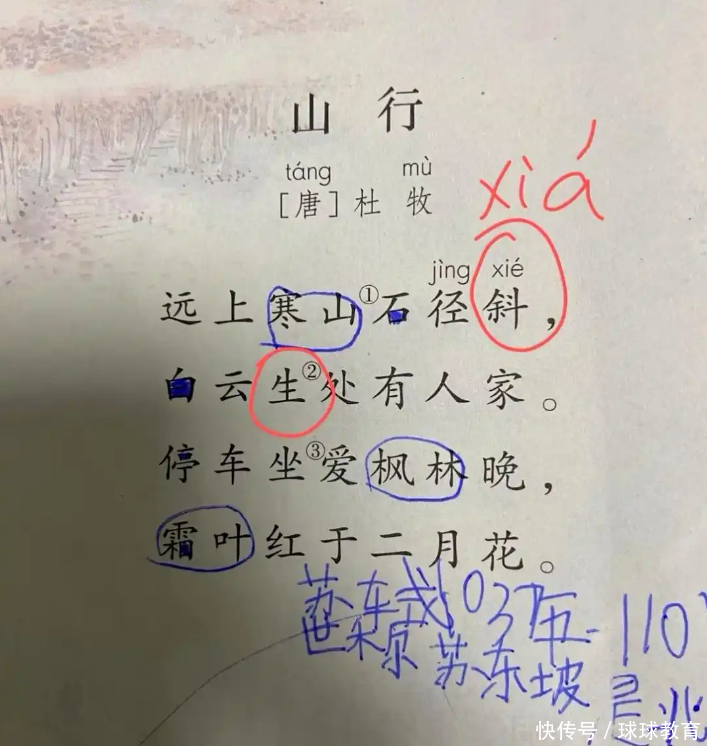 山 行
táng mù
[唐]杜 牧
xiá
jìng xié
远上寒山①石径斜，
白云生②处有人家。
停车坐③爱枫林晚，
霜叶红于二月花。
苏车或037年-110
苏东坡
快传号/球球教育